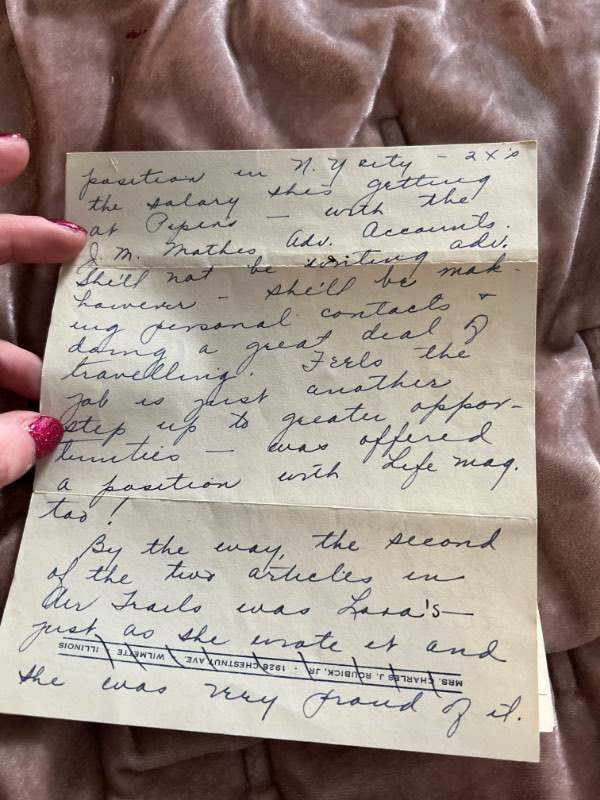 position in N. Y city - 2 X's
the salary shes getting
at Pepens - with the
J. M. Mathes Adv. Accounts.
She'll not be writing adv.
however - she'll be mak-
ing personal contacts &
doing a great deal of
travelling. Feels the
job is just another
step up to greater oppor-
tunities - was offered
a position with Life mag.
too!
By the way, the second
of the two articles in
Air Trails was Lora's -
just as she wrote it and
MRS. CHARLES J. ROUBICK, JR. - 1928 CHESTNUT AVE. WILMETTE - ILLINOIS
she was very proud of it.